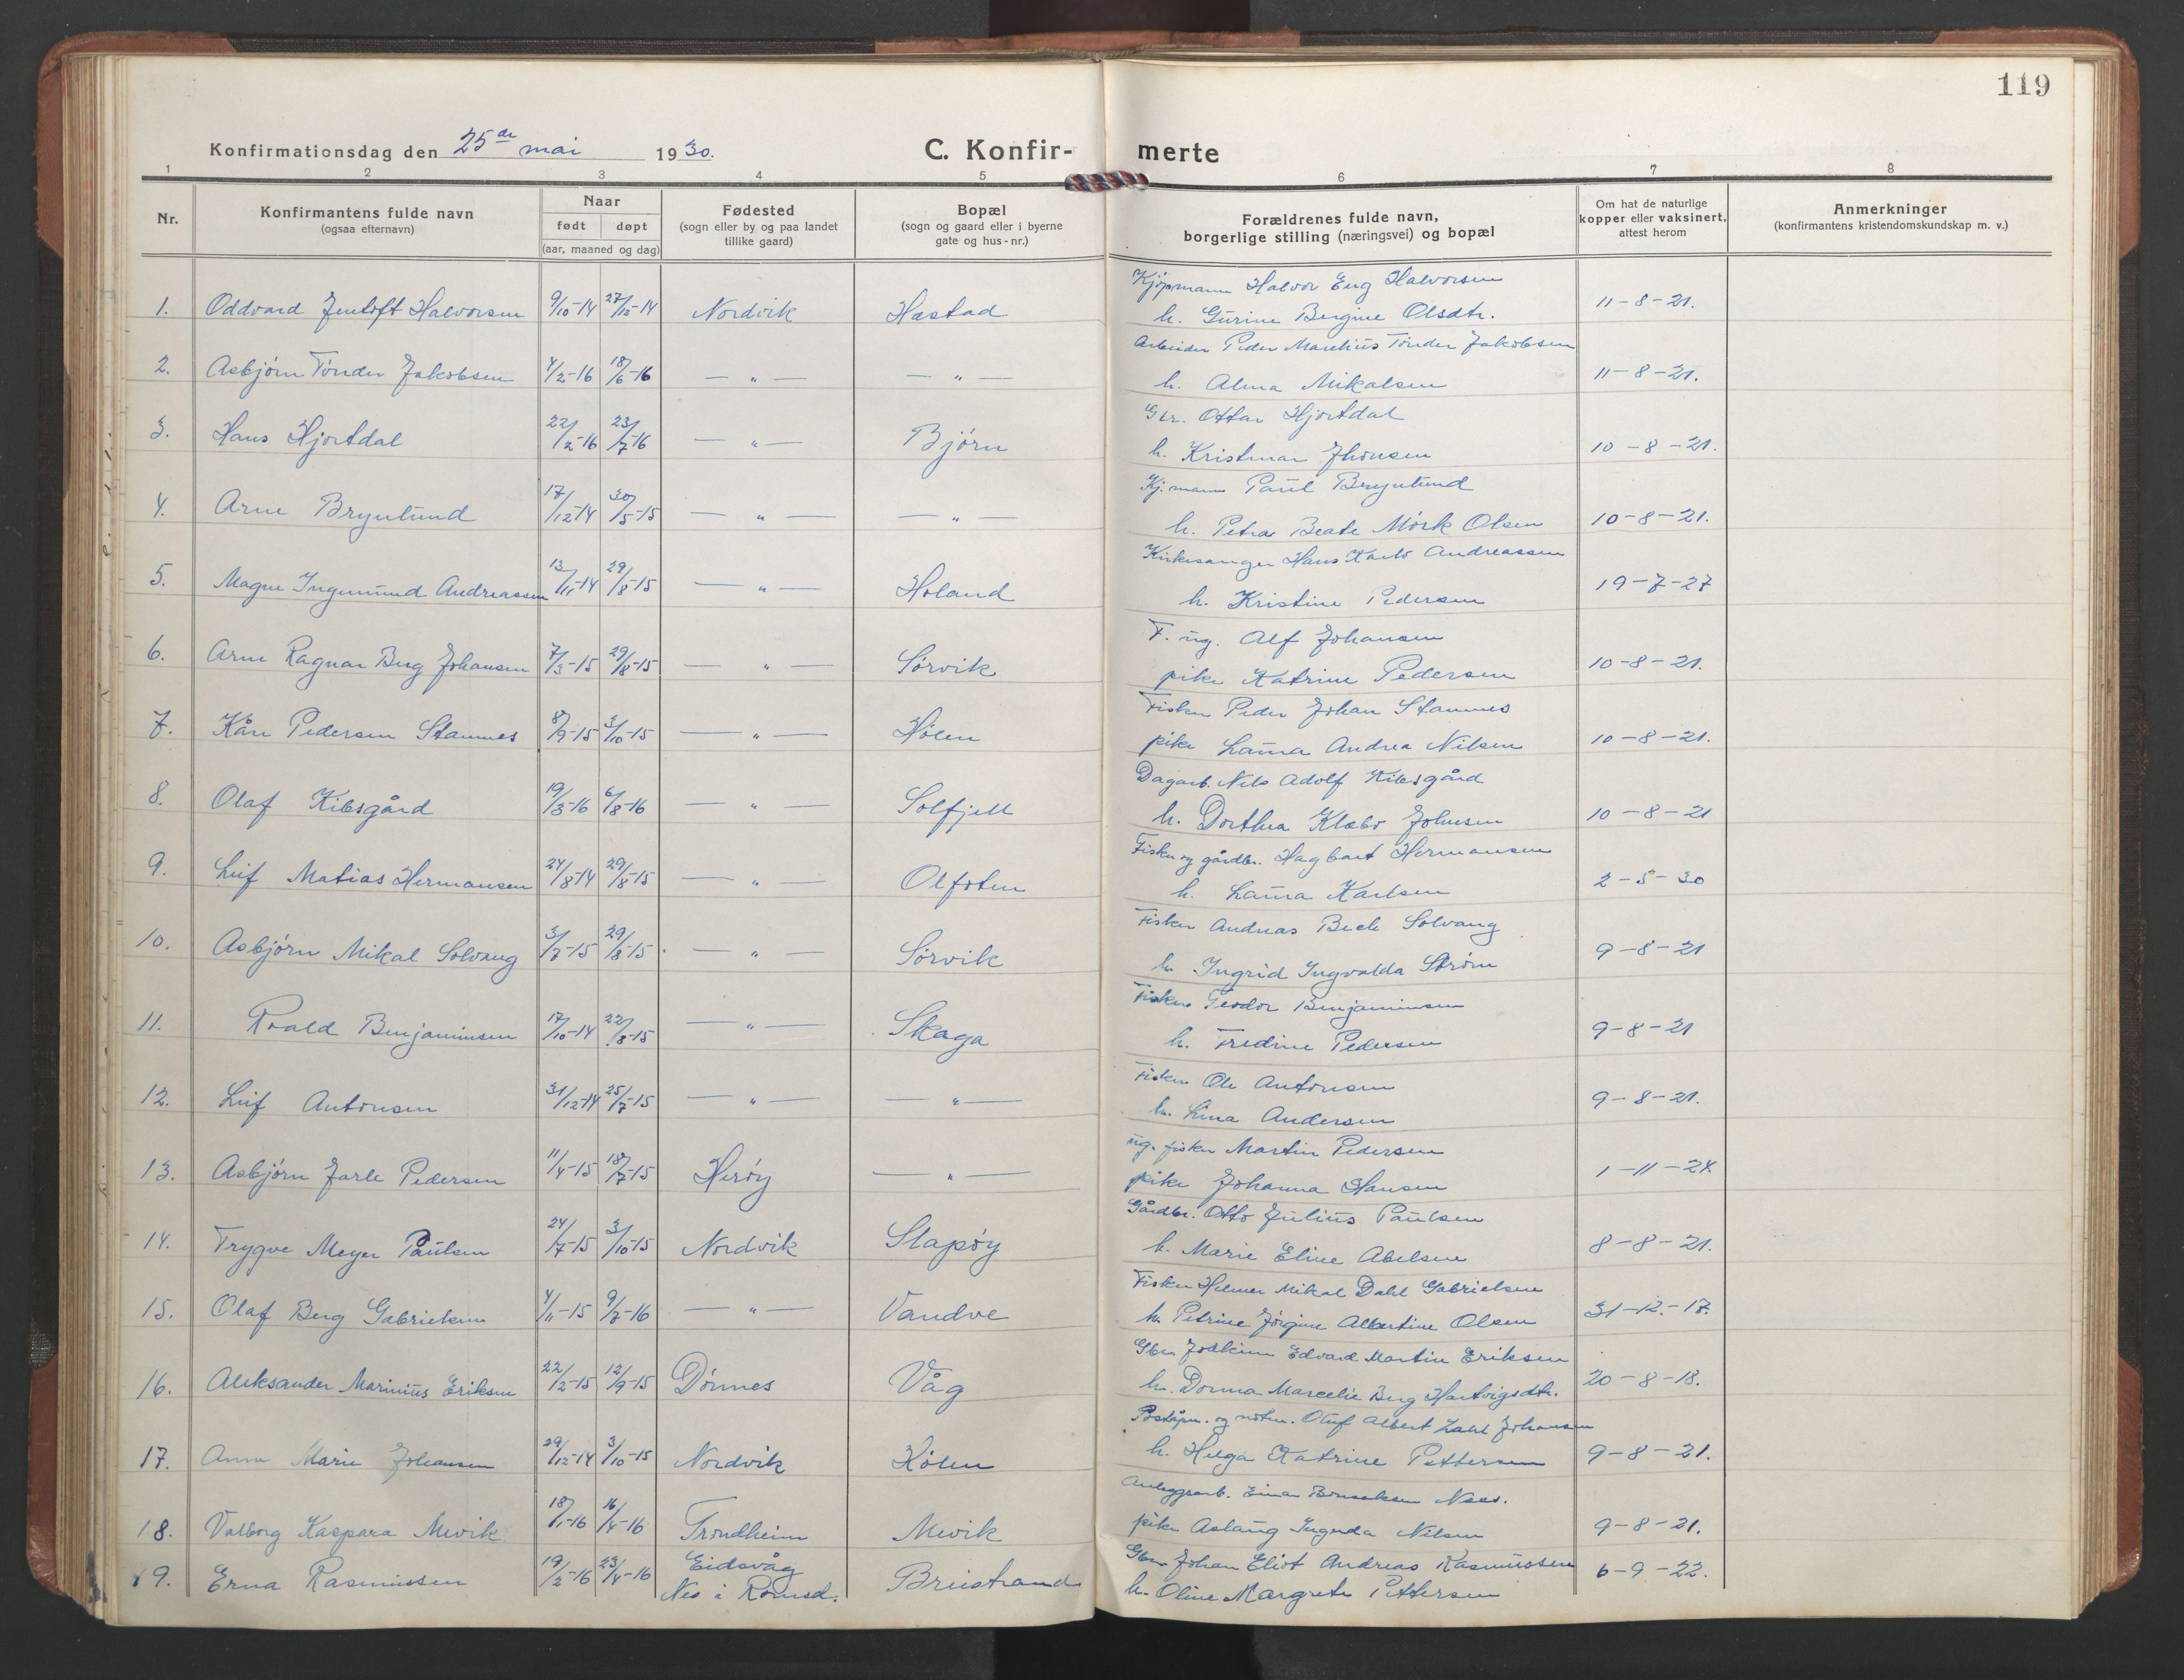 119
Konfirmationsdag den 25de mai 1930.
C. Konfir- merte
1 2 3 4 5 6 7 8
Nr. Konfirmantens fulde navn (ogsaa efternavn) Naar født døpt (aar, maaned og dag) Fødested (sogn eller by og paa landet tillike gaard) Bopæl (sogn og gaard eller i byerne gate og hus-nr.) Forældrenes fulde navn, borgerlige stilling (næringsvei) og bopæl Om hat de naturlige kopper eller vaksinert, attest herom Anmerkninger (konfirmantens kristendomskundskap m. v.)
Kjøpmann Halvor Eng Halvorsen
1. Oddvard Jentoft Halvorsen 9/10-14 27/12-14 Nordvik Hæstad h. Gurine Bergine Olsdtr. 11-8-21.
Arbeider Peder Marelius Tønder Jakobsen
2. Asbjørn Tønder Jakobsen 4/2-16 18/6-16 — " — — " — h. Alma Mikalsen 11-8-21.
Gbr. Ottar Hjortdal
3. Hans Hjortdal 22/2-16 23/7-16 — " — Bjørn h. Kristmar Jhonsen 10-8-21.
Kj.mann Paul Brynlund
4. Arne Brynlund 17/12-14 30/5-15 — " — — " — h. Petra Beate Mørk Olsen 10-8-21.
Kirkesanger Hans Karlo Andreassen
5. Magne Ingemund Andreassen 13/11-14 29/8-15 — " — Holand h. Kristine Pedersen 19-7-27
F. ug. Alf Johansen
6. Arne Ragnar Berg Johansen 7/3-15 29/8-15 — " — Sørvik pike Katrine Pedersen 10-8-21.
Fisker Peder Johan Stamnes
7. Kåre Pedersen Stamnes 8/9-15 3/10-15 — " — Hølen pike Laura Andrea Nilsen 10-8-21.
Dagarb. Nils Adolf Kibsgård
8. Olaf Kibsgård 19/3-16 6/8-16 — " — Solfjell h. Dorthea Klæbo Johnsen 10-8-21
Fisker og gårdbr. Hagbart Hermansen
9. Leif Matias Hermansen 24/8-14 29/8-15 — " — Olfoten h. Laura Karlsen 2-5-30
Fisker Andreas Beck Solvang
10. Asbjørn Mikal Solvang 3/7-15 29/8-15 — " — Sørvik h. Ingrid Ingvalda Strøm 9-8-21
Fisker Teodor Benjaminsen
11. Roald Benjaminsen 17/10-14 22/8-15 — " — Skaga h. Fredine Pedersen 9-8-21
Fisker Ole Antonsen
12. Leif Antonsen 31/12-14 25/7-15 — " — — " — h. Lina Andersen 9-8-21.
ug. fisker Martin Pedersen
13. Asbjørn Jarle Pedersen 11/4-15 18/7-15 Herøy — " — pike Johanna Hansen 1-11-24.
Gårdbr. Otto Julius Paulsen
14. Trygve Meyer Paulsen 24/7-15 3/10-15 Nordvik Slapøy h. Marie Eline Abelsen 8-8-21.
Fisker Hilmer Mikal Dahl Gabrielsen
15. Olaf Berg Gabrielsen 4/11-15 9/7-16 — " — Vandve h. Petrine Jørgine Albertine Olsen 31-12-17.
Gbr. Joakim Edvard Martin Eriksen
16. Aleksander Marinius Eriksen 22/2-15 12/9-15 Dønnes Våg h. Dorma Marcelie Berg Hartvigsdtr. 20-8-18.
Poståpn. og Oluf Albert Zahl Johansen
17. Anna Marie Johansen 29/12-14 3/10-15 Nordvik Kølen h. Helga Katrine Pettersen 9-8-21.
Anleggsarb. Einar Nees.
18. Valborg Kaspara Mevik 18/1-16 16/4-16 Trondheim Mevik pike Aslaug Nilsen 9-8-21.
Gbr. Johan Eliot Andreas Rasmussen
19. Erna Rasmussen 19/2-16 23/4-16 Eidsvåg Nes i Romsd. Breistrand h. Oline Margrete Pettersen 6-9-22.